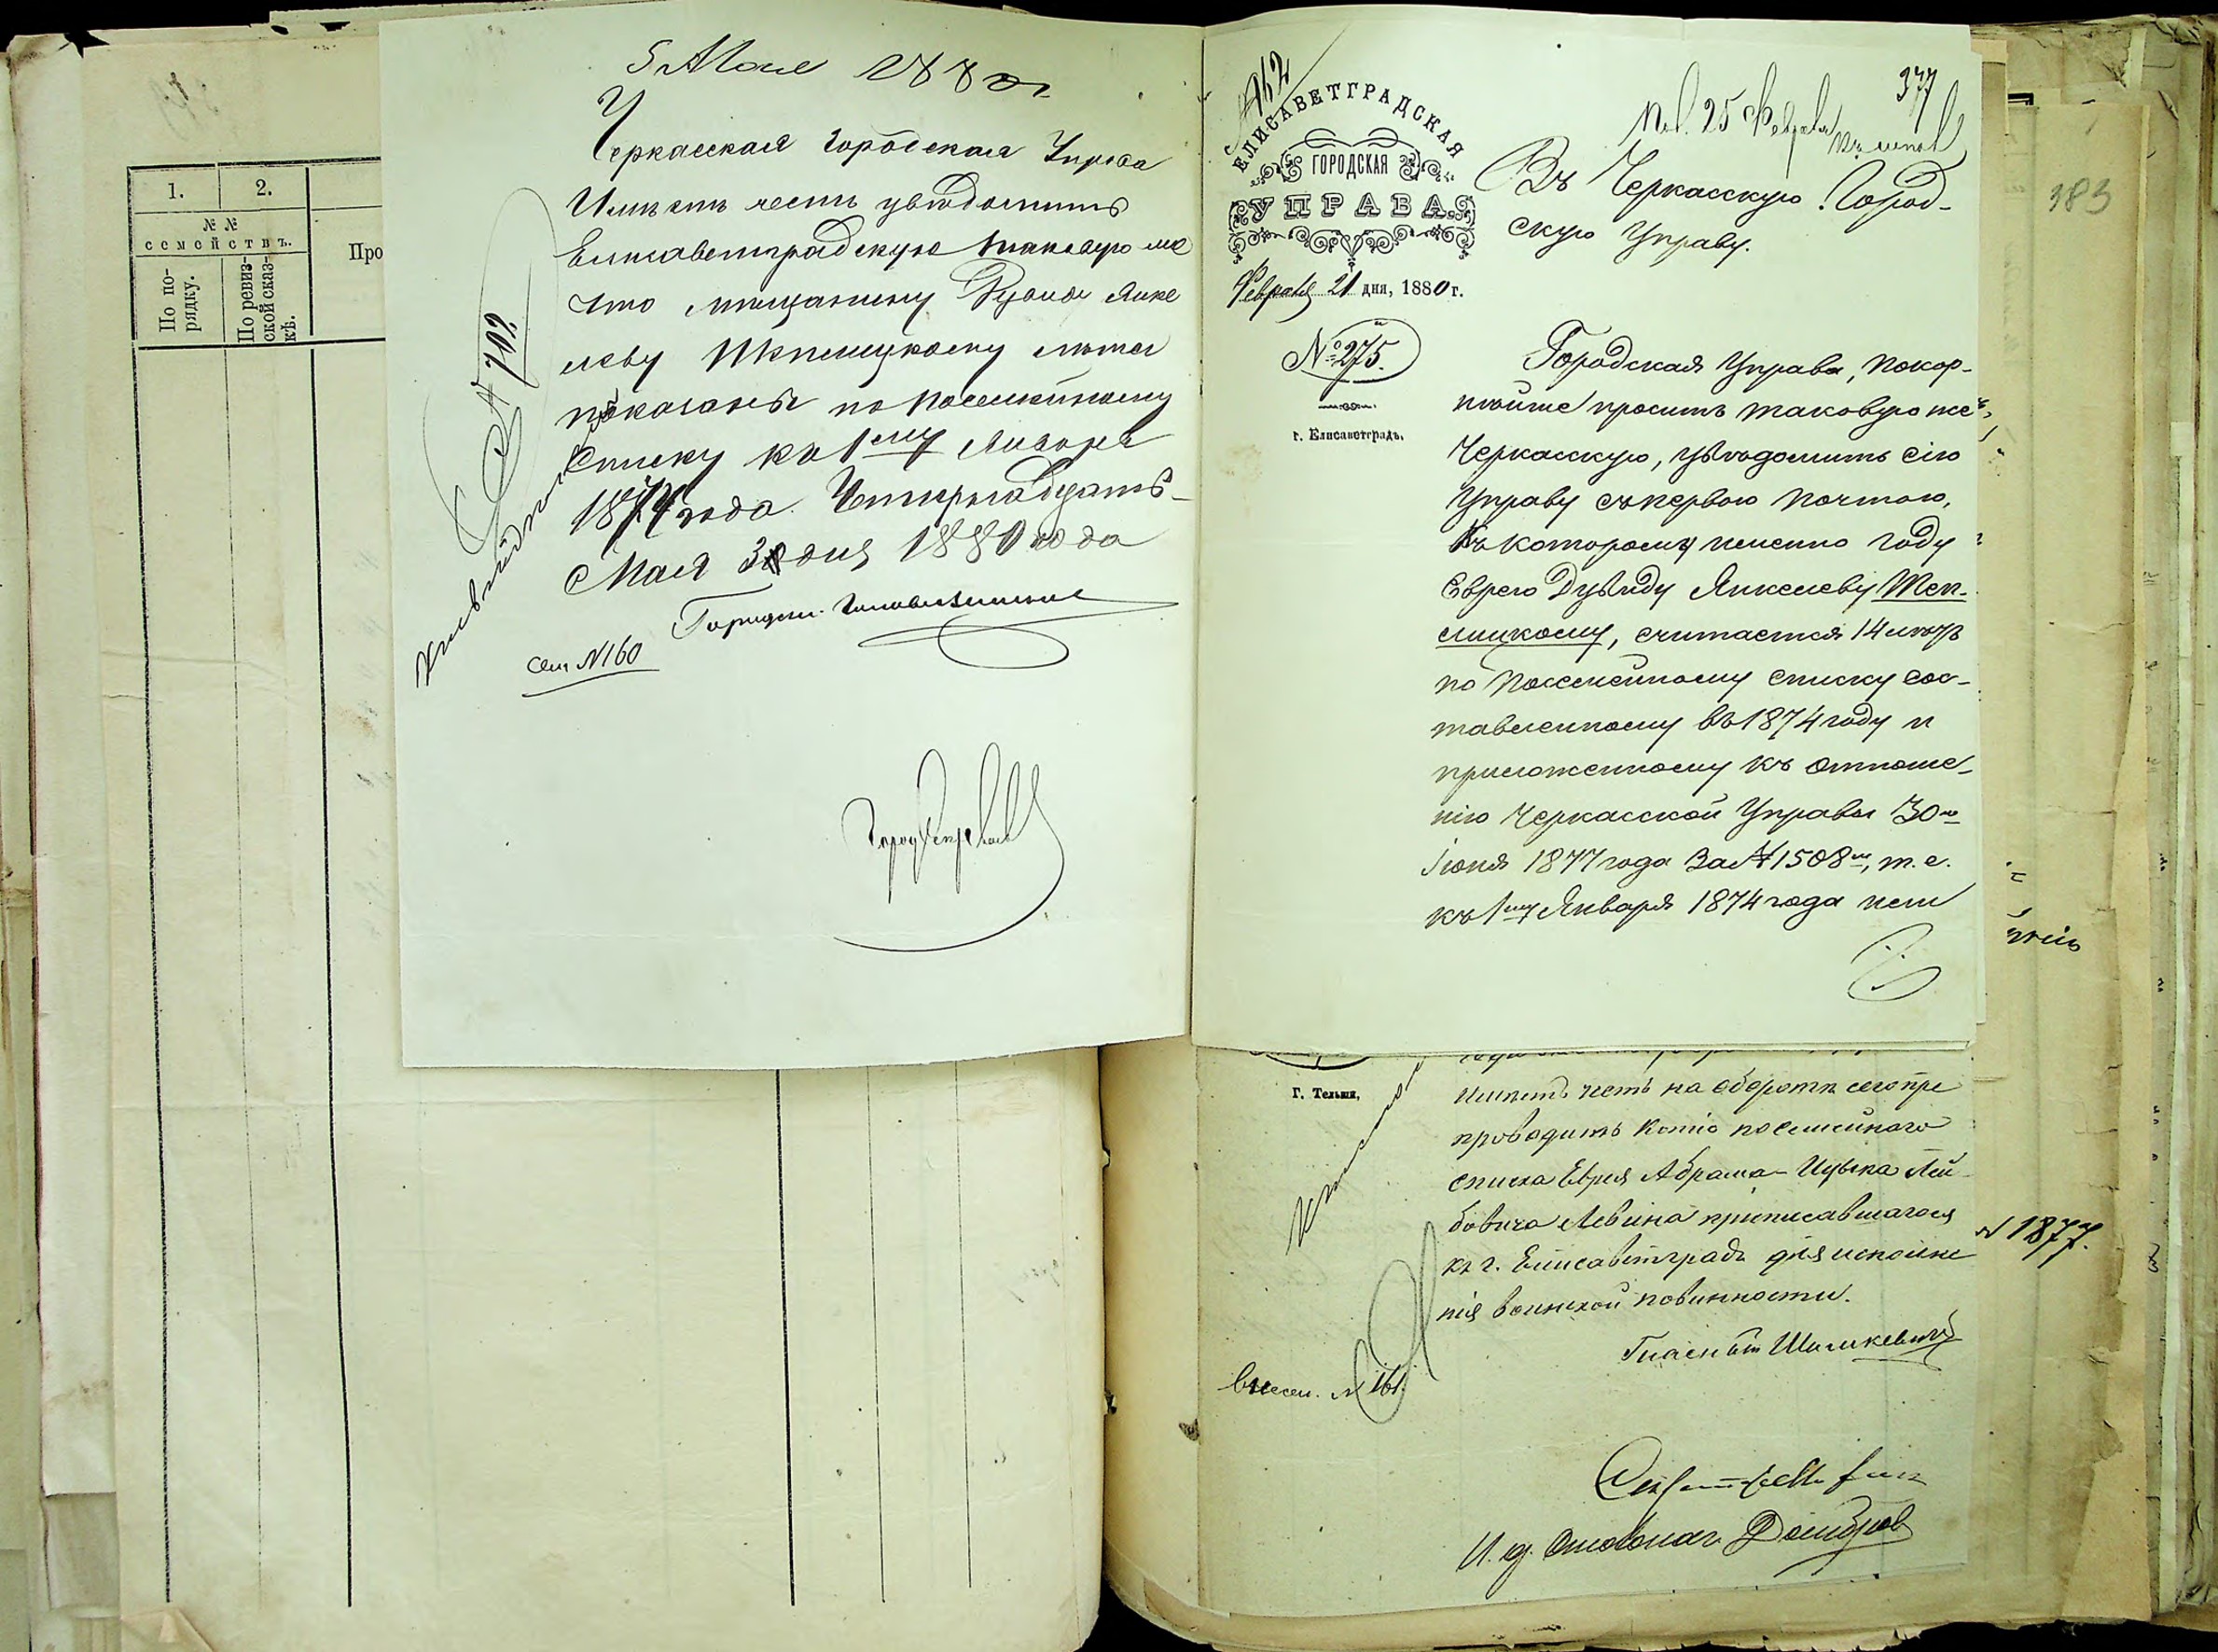 1.
2.
№ №
семействъ.
По по-
рядку.
По ревиз-
ской сказ-
кѣ.
Про
5 Мая 1880 г
Черкасская Городская Управа
Имѣетъ честь увѣдомить
Елисаветградскую таковую же
что мещанину Янке
леву лѣта
показаны по посемейному
списку къ 1му Января
1874 года Четырнадцать
Мая 3 дня 1880 года
№ 702
сем №160
912
ЕЛИСАВЕТГРАДСКАЯ
ГОРОДСКАЯ
УПРАВА.
Февраля 21 дня, 1880 г.
№ 275.
г. Елисаветградъ.
377
Пол. 25 Февраля
Въ Черкасскую Город-
скую Управу.
Городская Управа, покор-
нѣйше проситъ таковую же
Черкасскую, увѣдомить сію
Управу съ первою почтою,
къ которому именно году
Еврею Дувиду Янкелеву Теп-
лицкому, считается 14 лѣтъ
по посемейному списку сос-
тавленному въ 1874 году и
приложенному къ отноше-
нію Черкасской Управы 30го
Іюня 1877 года за № 1508м, т. е.
къ 1му Января 1874 года или
383
Г. Тельши,
имѣетъ честь на оборотѣ сего пре
проводить копію посемейнаго
списка Еврея Абрама-Ицыка Лей-
бовича Левина приписавшагося
къ г. Елисаветградъ для исполне
нія воинской повинности.
Гласный Шимкевичъ
№ 161.
И. д. Столонач. Домбров
№ 1877.